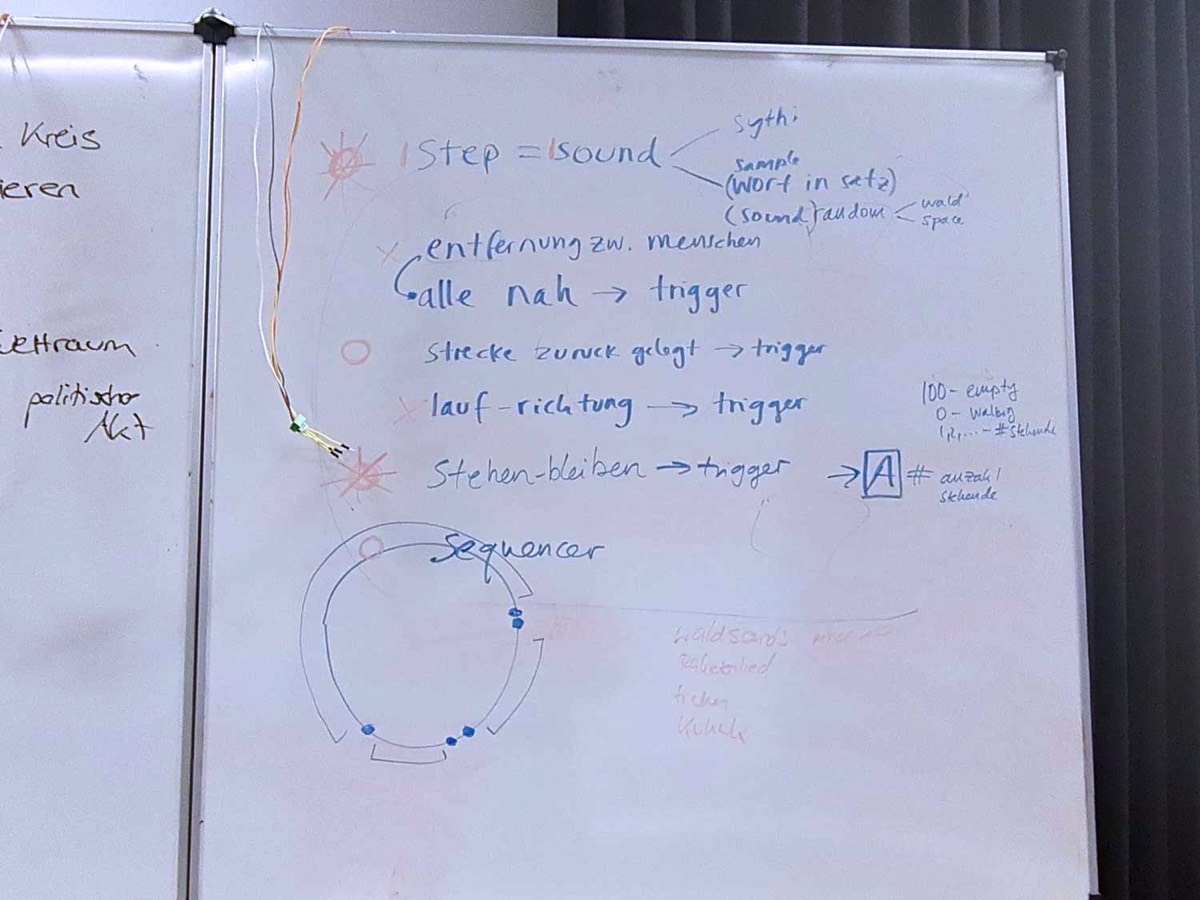 Kreis
ieren
politischer
Akt
1 Step = 1 sound
sythi
sample
(wort in satz)
(sound) random
wald
space
entfernung zw. menschen
alle nah → trigger
strecke zuruck gelegt → trigger
lauf-richtung → trigger
100 - empty
0 - walking
1,2,... - # stehende
Stehen-bleiben → trigger → A # anzahl
stehende
Sequencer